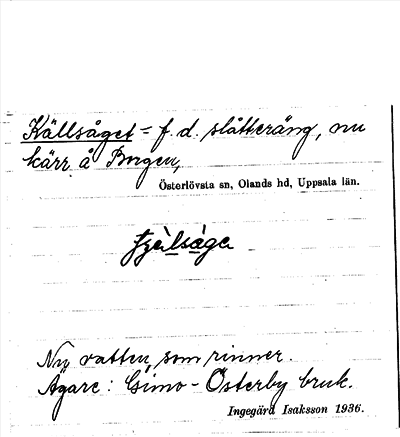 Källsåget = f. d. slåtteräng, nu
kärr å Borgen,
Österlövsta sn, Olands hd, Uppsala län.
Nu vatten, som rinner.
Ägare: Gimo-Österby bruk.
Ingegärd Isaksson 1936.